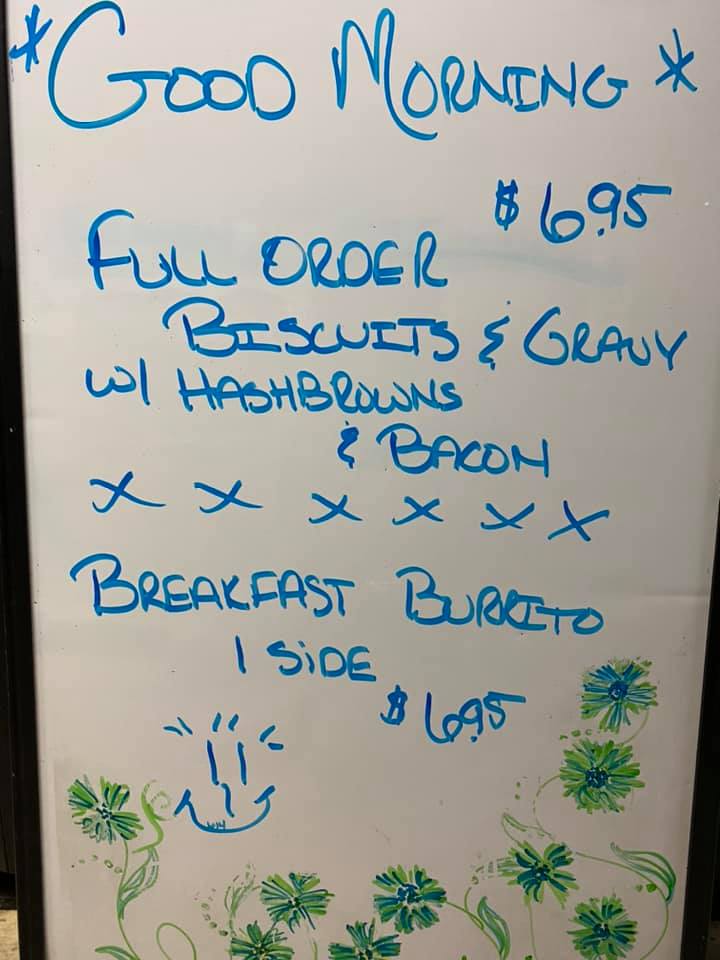 *GOOD MORNING*
$6.95
FULL ORDER
BISCUITS & GRAVY
W/ HASHBROWNS
& BACON
x x x x x x
BREAKFAST BURRITO
1 SiDE
$6.95